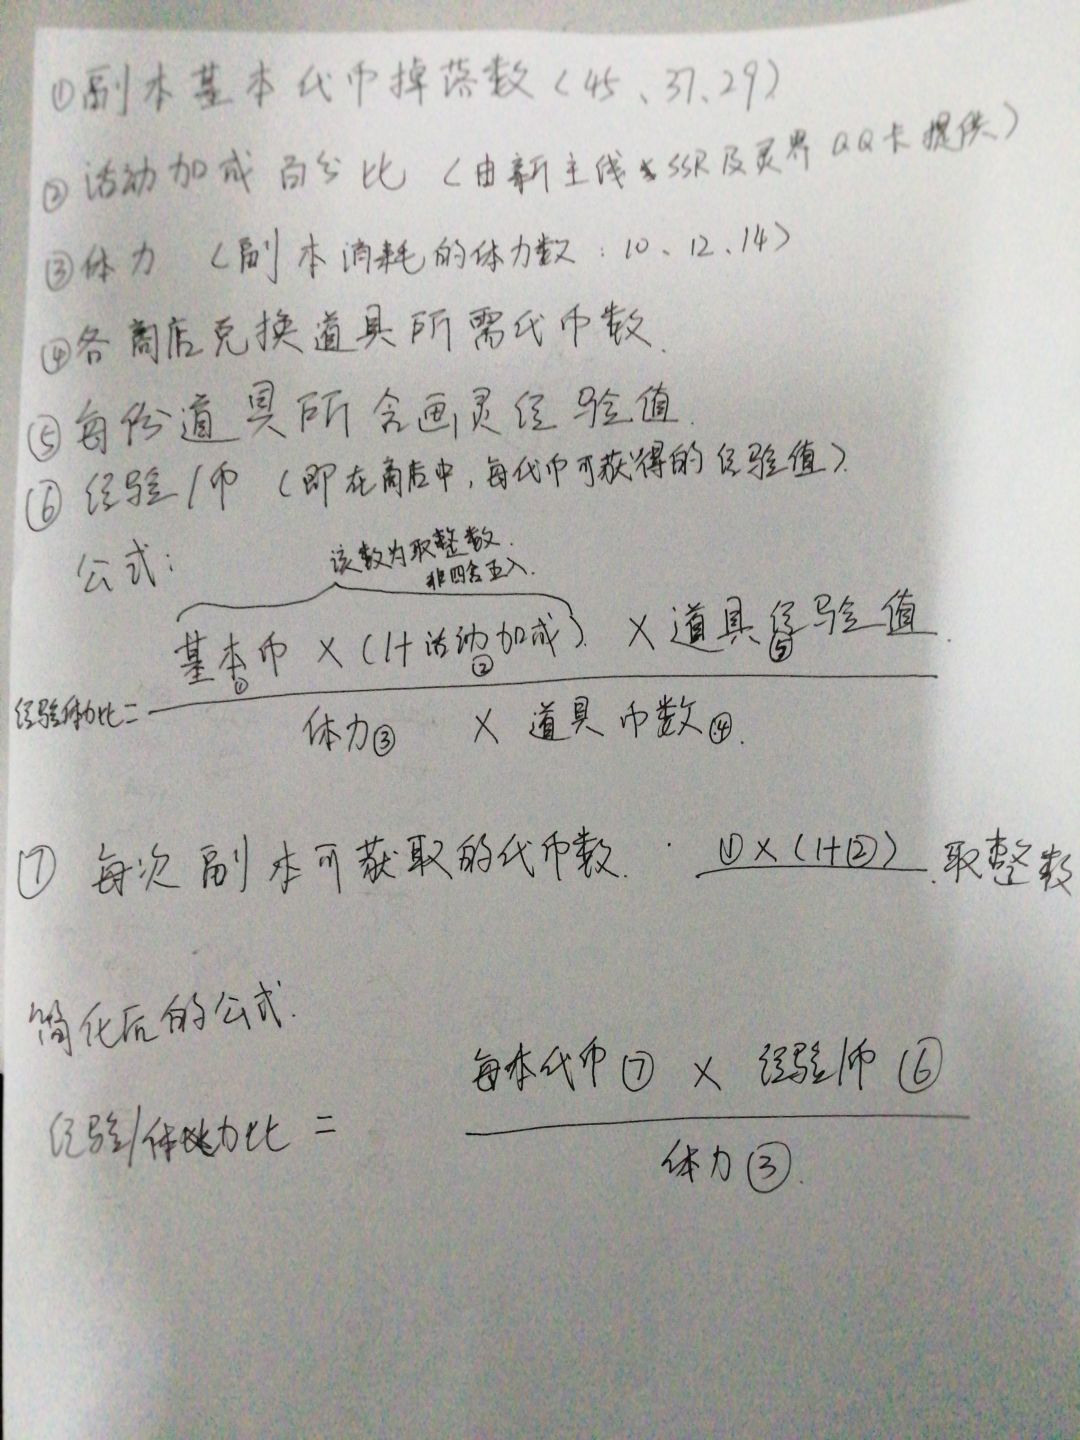 ①副本基本代币掉落数(45、37、29)
②活动加成百分比(由新主线SSR及灵界QQ卡提供)
③体力(副本消耗的体力数:10、12、14)
④各商店兑换道具所需代币数.
⑤每份道具所含画灵经验值.
⑥经验/币(即在商店中,每代币可获得的经验值).
公式:
该数为取整数.
非四舍五入.
基本币①×(1+活动加成②)×道具经验值⑤.
经验体力比=
体力③×道具币数④.
⑦每次副本可获取的代币数. ①×(1+②).取整数
简化后的公式.
每本代币⑦×经验/币⑥
经验/体力比=
体力③.